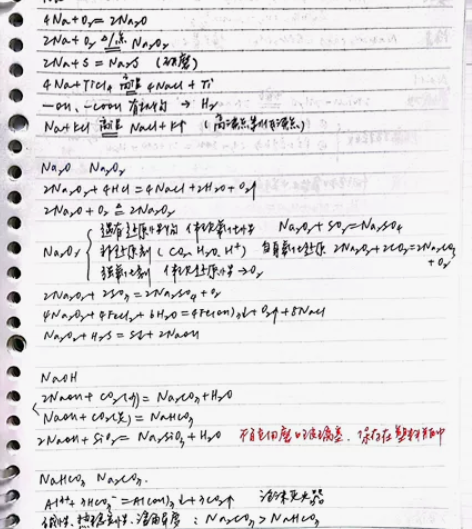 4Na+O₂=2Na₂O
2Na+O₂ △/点 Na₂O₂
2Na+S=Na₂S (研磨)
4Na+TiCl₄ 高温 4NaCl+Ti
-OH、-COOH 有机物 → H₂
Na+KCl 高温 NaCl+K↑ (高沸点制低沸点)
Na₂O Na₂O₂
2Na₂O₂+4HCl=4NaCl+2H₂O+O₂↑
2Na₂O+O₂ △ 2Na₂O₂
遇有还原性的 体现氧化性 Na₂O₂+SO₂=Na₂SO₄
Na₂O₂ 非还原剂(CO₂、H₂O、H⁺) 自身氧化还原 2Na₂O₂+2CO₂=2Na₂CO₃+O₂
强氧化剂 体现还原性→O₂
2Na₂O₂+2SO₃=2Na₂SO₄+O₂
4Na₂O₂+4FeCl₂+6H₂O=4Fe(OH)₃↓+O₂↑+8NaCl
Na₂O₂+H₂S=S↓+2NaOH
NaOH
2NaOH+CO₂(少)=Na₂CO₃+H₂O
NaOH+CO₂(足)=NaHCO₃
2NaOH+SiO₂=Na₂SiO₃+H₂O 不可用磨口玻璃塞,保存在塑料瓶中
NaHCO₃ Na₂CO₃.
Al³⁺+3HCO₃⁻=Al(OH)₃↓+3CO₂↑ 泡沫灭火器
碱性、热稳定性、溶解度:Na₂CO₃>NaHCO₃